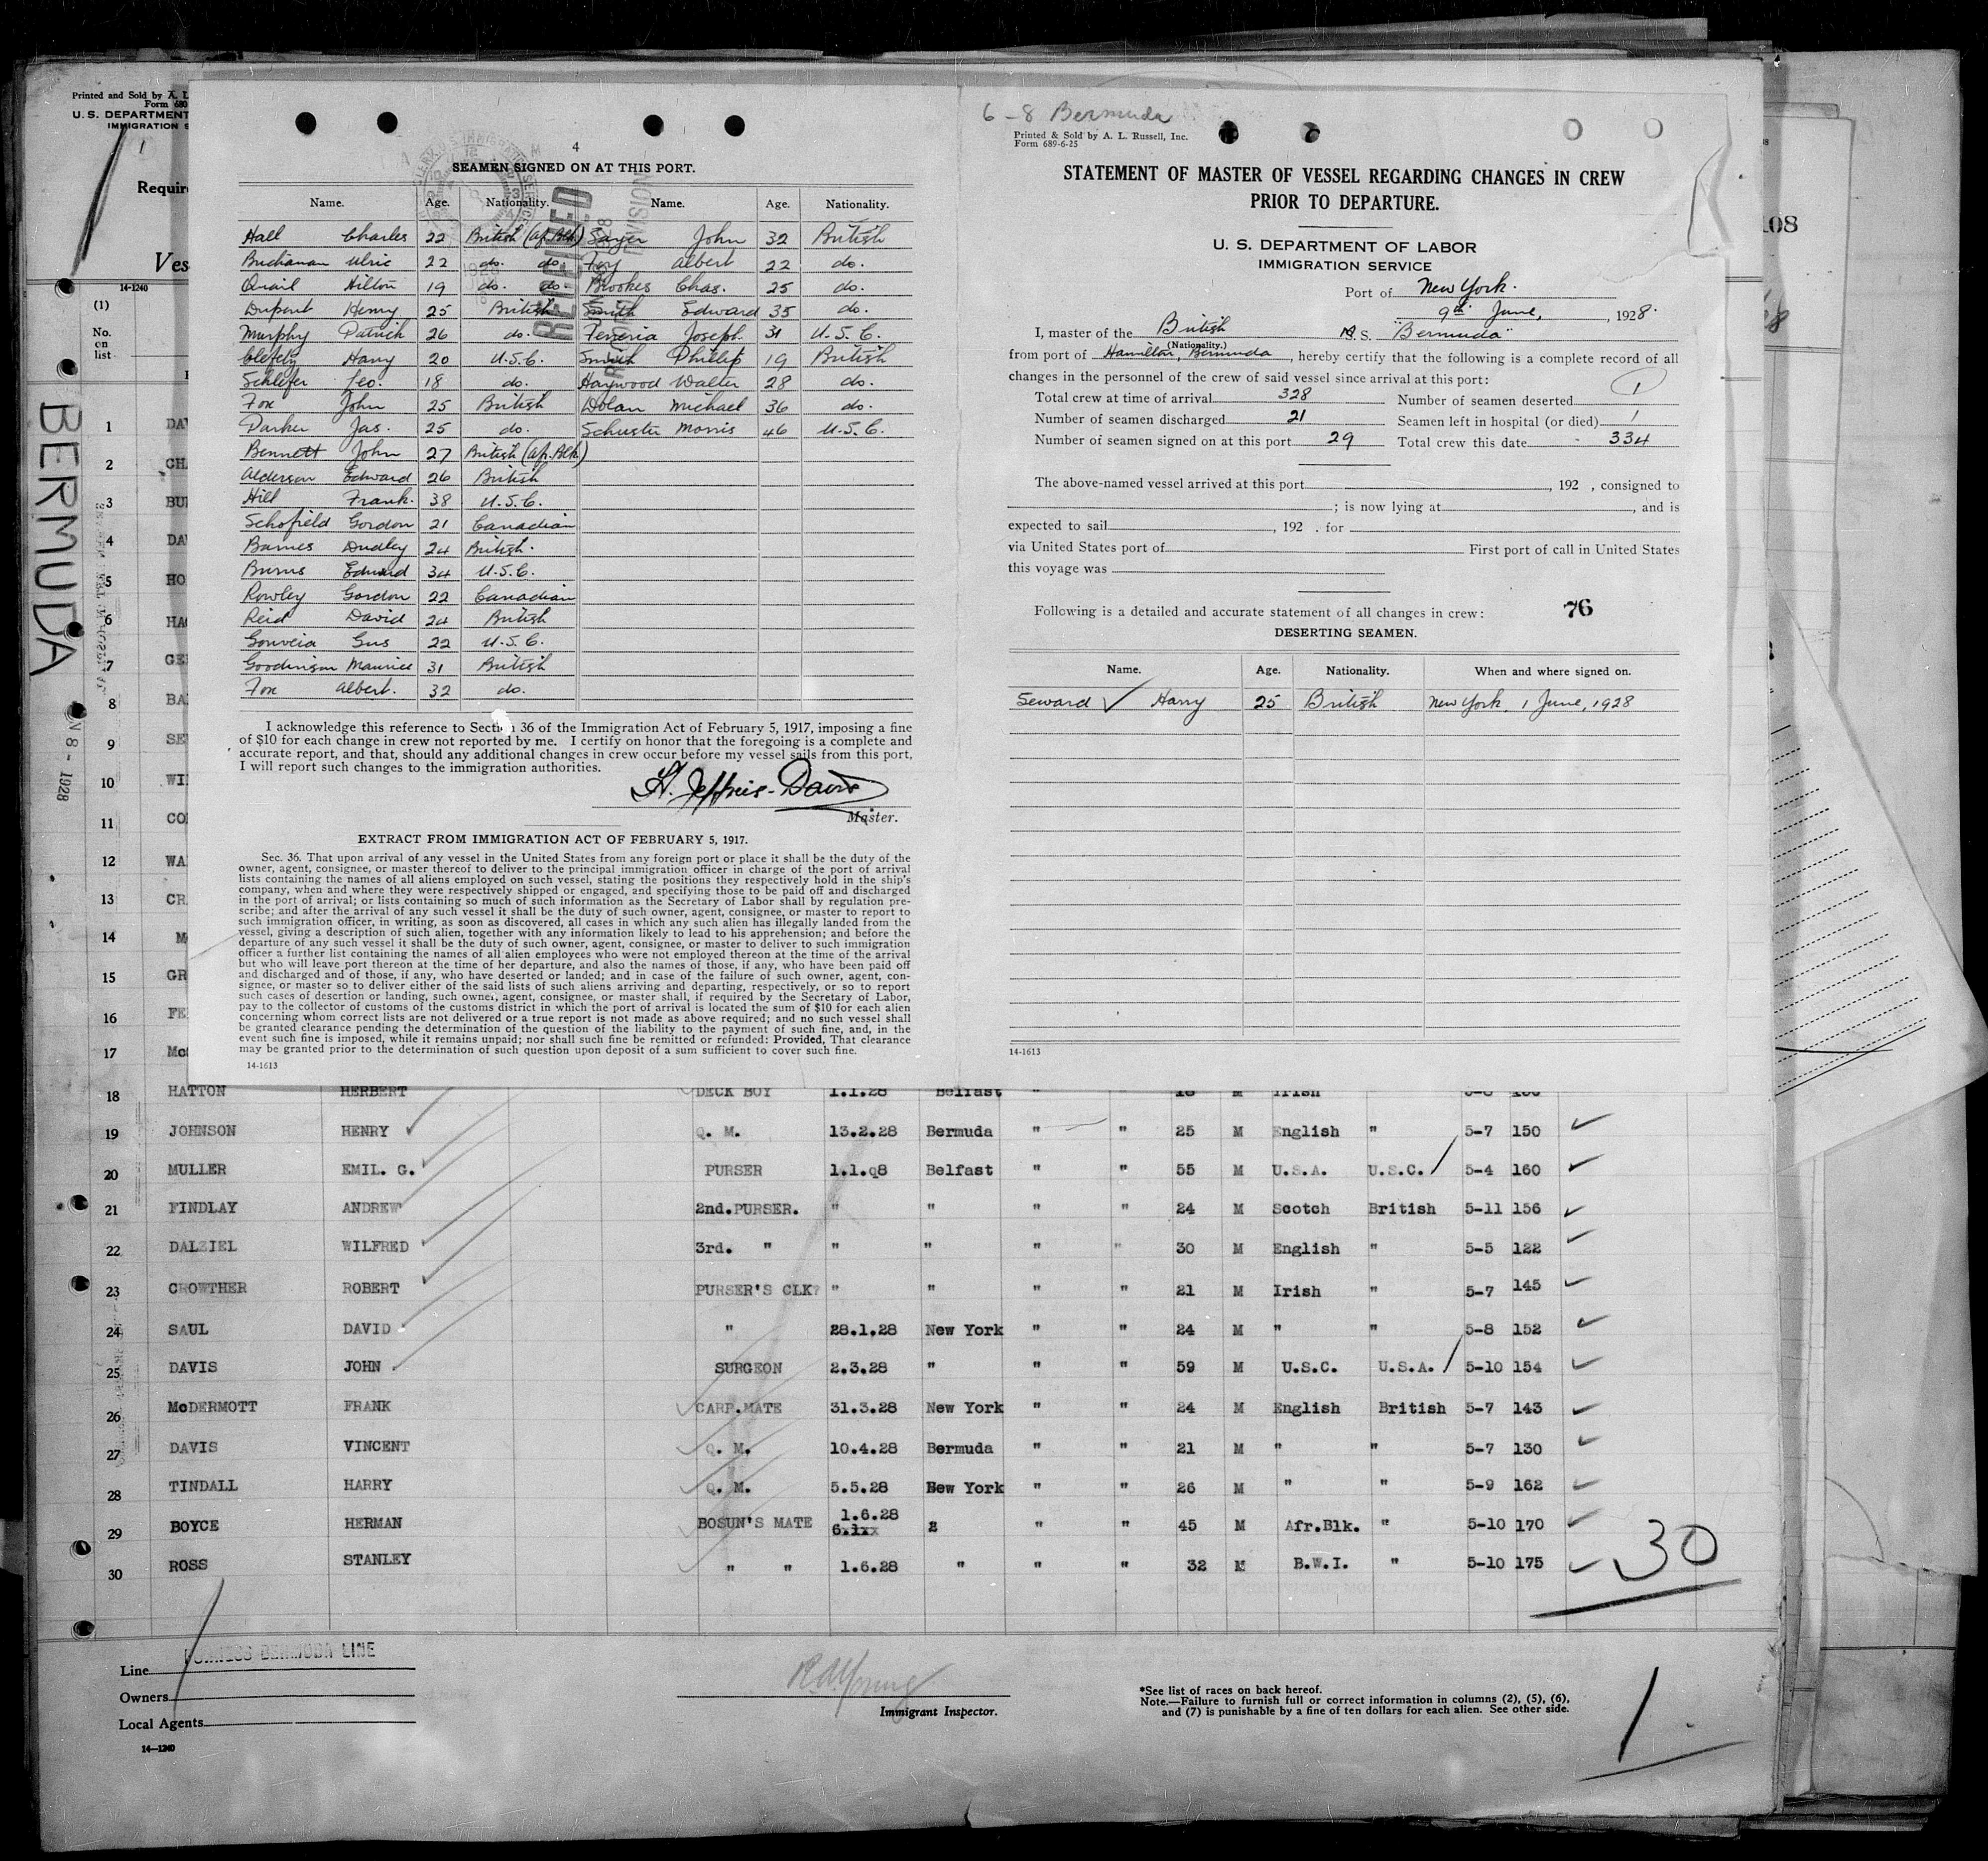 Printed and Sold by A. L.
Form 680
U. S. DEPARTMENT
IMMIGRATION S
Requir
Ves
14-1240
(1)
No.
on
list
BERMUDA
N 8 - 1928
4
SEAMEN SIGNED ON AT THIS PORT.
Name. Age. Nationality. Name. Age. Nationality.
RECEIVED
Hall Charles 22 British (Af. Blk) Sayer John 32 British
Buchanan Ulric 22 do. do. Foy Albert 22 do.
Quail Hilton 19 do. do. Brookes Chas. 25 do.
Dupont Henry 25 British Smith Edward 35 do.
Murphy Patrick 26 do. Ferreria Joseph 31 U.S.C.
Harry 20 U.S.C. Smith Phillip 19 British
Schlefer Leo. 18 do. Haywood Walter 28 do.
Fox John 25 British Dolan Michael 36 do.
Parker Jas. 25 do. Schuster Morris 46 U.S.C.
Bennett John 27 British (Af. Blk.)
Alderson Edward 26 British
Hill Frank. 38 U.S.C.
Schofield Gordon 21 Canadian
Barnes Dudley 24 British.
Burns Edward 34 U.S.C.
Rowley Gordon 22 Canadian
Reid David 24 British
Gouveia Gus 22 U.S.C.
Maurice 31 British
Fox Albert. 32 do.
I acknowledge this reference to Section 36 of the Immigration Act of February 5, 1917, imposing a fine
of $10 for each change in crew not reported by me. I certify on honor that the foregoing is a complete and
accurate report, and that, should any additional changes in crew occur before my vessel sails from this port,
I will report such changes to the immigration authorities.
H. Jeffries-Davis
Master.
EXTRACT FROM IMMIGRATION ACT OF FEBRUARY 5, 1917.
Sec. 36. That upon arrival of any vessel in the United States from any foreign port or place it shall be the duty of the
owner, agent, consignee, or master thereof to deliver to the principal immigration officer in charge of the port of arrival
lists containing the names of all aliens employed on such vessel, stating the positions they respectively hold in the ship's
company, when and where they were respectively shipped or engaged, and specifying those to be paid off and discharged
in the port of arrival; or lists containing so much of such information as the Secretary of Labor shall by regulation pre-
scribe; and after the arrival of any such vessel it shall be the duty of such owner, agent, consignee, or master to report to
such immigration officer, in writing, as soon as discovered, all cases in which any such alien has illegally landed from the
vessel, giving a description of such alien, together with any information likely to lead to his apprehension; and before the
departure of any such vessel it shall be the duty of such owner, agent, consignee, or master to deliver to such immigration
officer a further list containing the names of all alien employees who were not employed thereon at the time of the arrival
but who will leave port thereon at the time of her departure, and also the names of those, if any, who have been paid off
and discharged and of those, if any, who have deserted or landed; and in case of the failure of such owner, agent, con-
signee, or master so to deliver either of the said lists of such aliens arriving and departing, respectively, or so to report
such cases of desertion or landing, such owner, agent, consignee, or master shall, if required by the Secretary of Labor,
pay to the collector of customs of the customs district in which the port of arrival is located the sum of $10 for each alien
concerning whom correct lists are not delivered or a true report is not made as above required; and no such vessel shall
be granted clearance pending the determination of the question of the liability to the payment of such fine, and, in the
event such fine is imposed, while it remains unpaid; nor shall such fine be remitted or refunded: Provided, That clearance
may be granted prior to the determination of such question upon deposit of a sum sufficient to cover such fine.
14-1613
6-8 Bermuda
Printed & Sold by A. L. Russell, Inc.
Form 689-6-25
STATEMENT OF MASTER OF VESSEL REGARDING CHANGES IN CREW
PRIOR TO DEPARTURE.
U. S. DEPARTMENT OF LABOR
IMMIGRATION SERVICE
Port of New York.
9th June, , 1928.
I, master of the British M.S. "Bermuda"
(Nationality.)
from port of Hamilton, Bermuda , hereby certify that the following is a complete record of all
changes in the personnel of the crew of said vessel since arrival at this port:
Total crew at time of arrival 328 Number of seamen deserted 1
Number of seamen discharged 21 Seamen left in hospital (or died) 1
Number of seamen signed on at this port 29 Total crew this date 334
The above-named vessel arrived at this port , 192 , consigned to
; is now lying at , and is
expected to sail , 192 . for
via United States port of First port of call in United States
this voyage was
Following is a detailed and accurate statement of all changes in crew: 76
DESERTING SEAMEN.
Name. Age. Nationality. When and where signed on.
Seward Harry 25 British New York, 1 June, 1928
14-1613
108
1 DA
2 CH
3 BU
4 DA
5 HO
6 HA
7 GE
8 BA
9 SE
10 WI
11 CO
12 WA
13 CR
14 M
15 GR
16 FE
17 Mc
18 HATTON HERBERT DECK BOY 1.1.28 Belfast " " 18 M Irish
19 JOHNSON HENRY Q. M. 13.2.28 Bermuda " " 25 M English " 5-7 150
20 MULLER EMIL. G. PURSER 1.1.q8 Belfast " " 55 M U.S.A. U.S.C. 5-4 160
21 FINDLAY ANDREW 2nd.PURSER. " " " " 24 M Scotch British 5-11 156
22 DALZIEL WILFRED 3rd. " " " " " 30 M English " 5-5 122
23 CROWTHER ROBERT PURSER'S CLK? " " " " 21 M Irish " 5-7 145
24 SAUL DAVID " 28.1.28 New York " " 24 M " " 5-8 152
25 DAVIS JOHN SURGEON 2.3.28 " " " 59 M U.S.C. U.S.A. 5-10 154
26 McDERMOTT FRANK CARP.MATE 31.3.28 New York " " 24 M English British 5-7 143
27 DAVIS VINCENT Q. M. 10.4.28 Bermuda " " 21 M " " 5-7 130
28 TINDALL HARRY Q. M. 5.5.28 Bew York " " 26 M " " 5-9 162
29 BOYCE HERMAN BOSUN'S MATE 1.6.28 2 " " 45 M Afr.Blk. " 5-10 170
30 ROSS STANLEY " " 1.6.28 " " " 32 M B.W.I. " 5-10 175
30
Line FURNESS BERMUDA LINE
Owners
Local Agents
14-1240
Immigrant Inspector.
*See list of races on back hereof.
Note.—Failure to furnish full or correct information in columns (2), (5), (6),
and (7) is punishable by a fine of ten dollars for each alien. See other side.
1